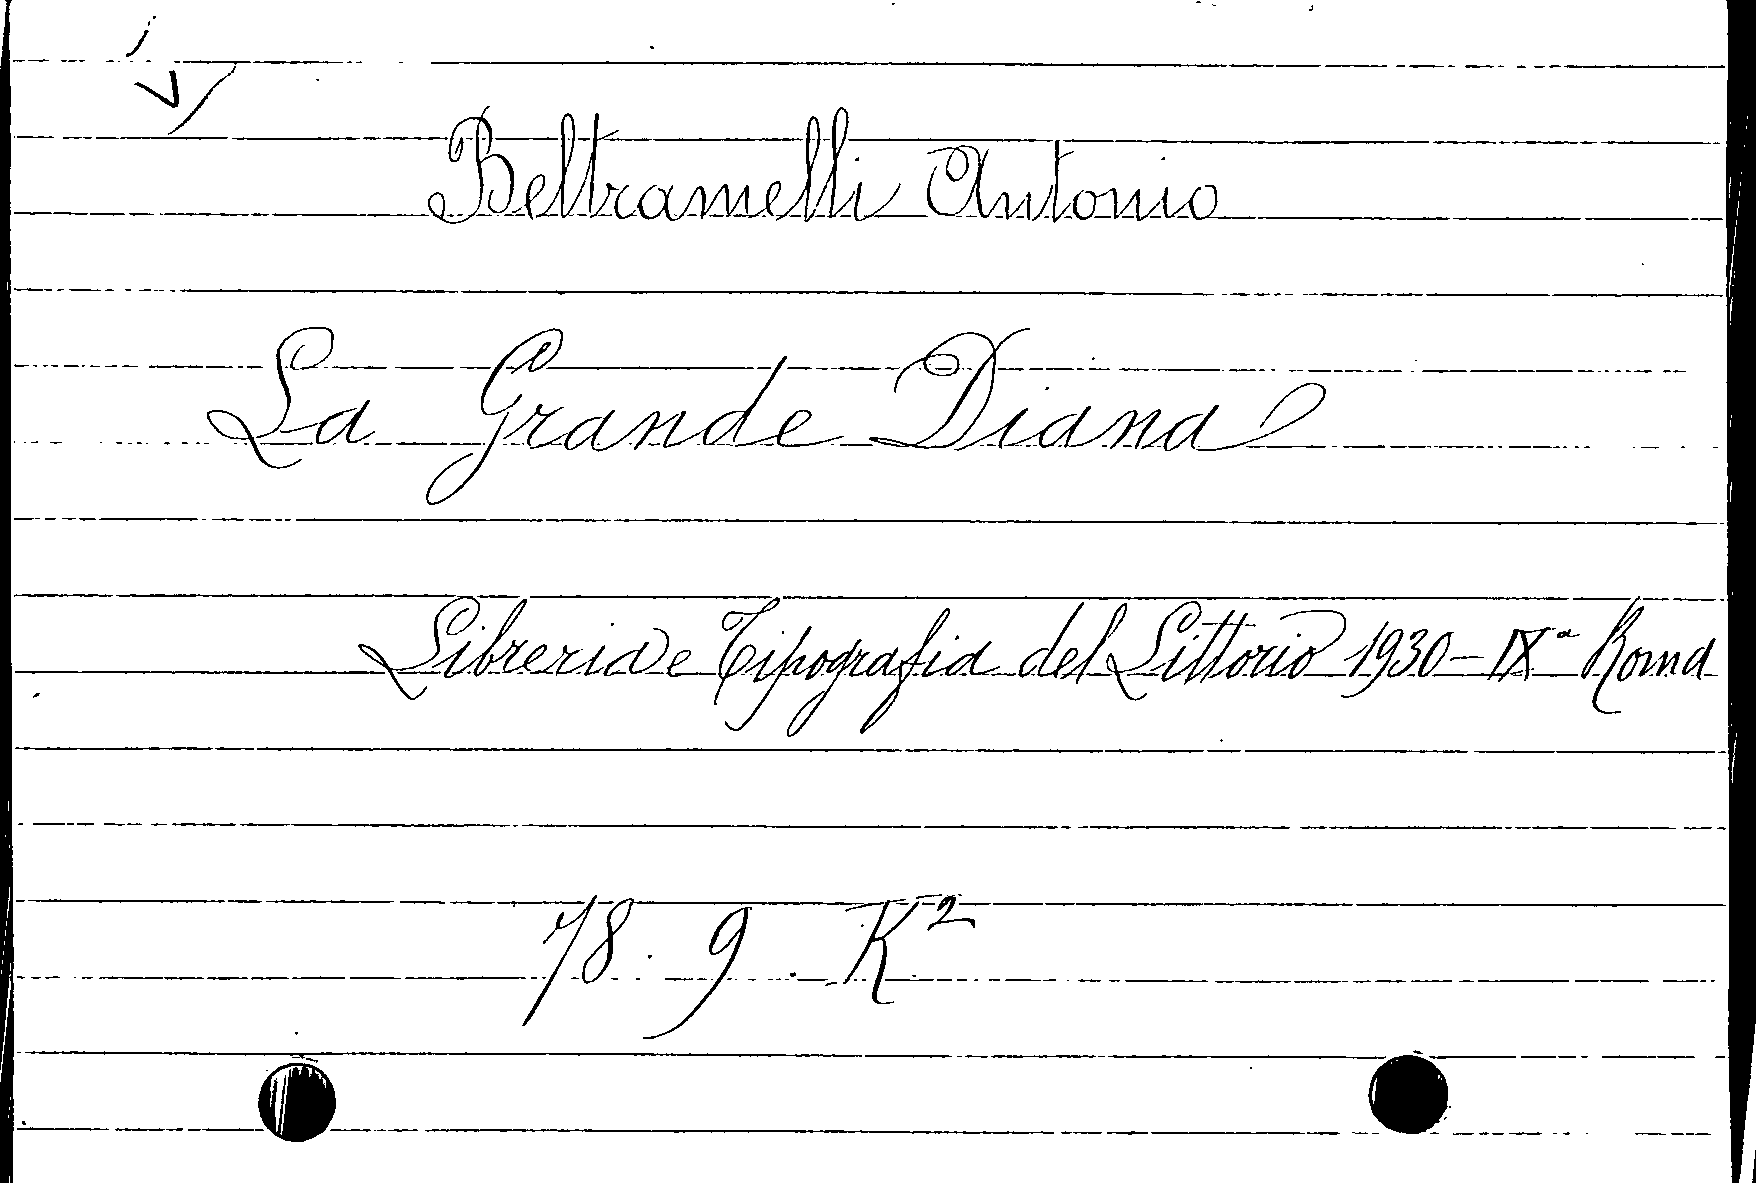 Beltramelli Antonio
La Grande Diana
Libreria e Tipografia del Littorio 1930 - IXª Roma
78. 9. K²